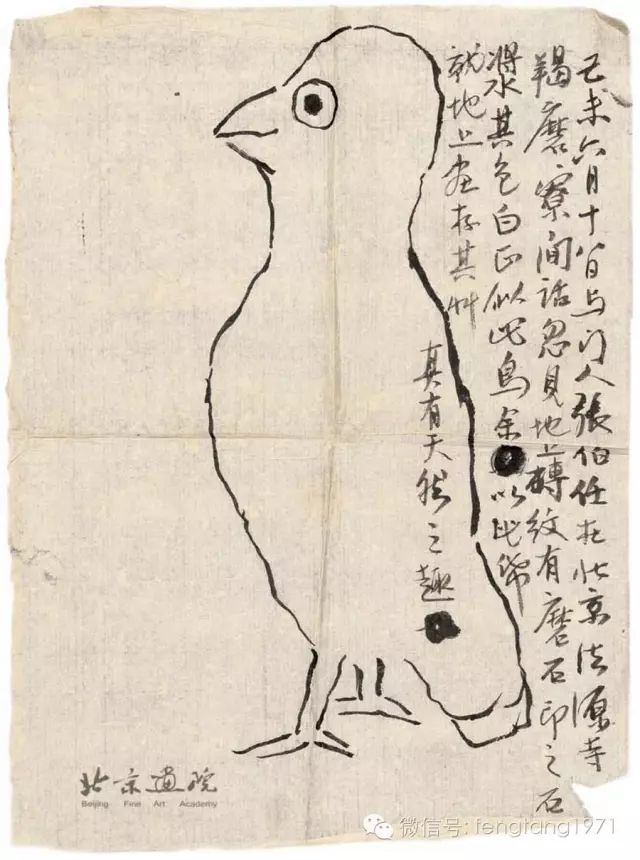 己未六月十八日与门人張伯任在北京法源寺
羯磨寮間話忽見地上磚紋有磨石印之石
漿水其色白正似此鳥余以此紙
就地上畫存其艸
真有天然之趣
北京畫院
Beijing Fine Art Academy
微信号: fengfang1971